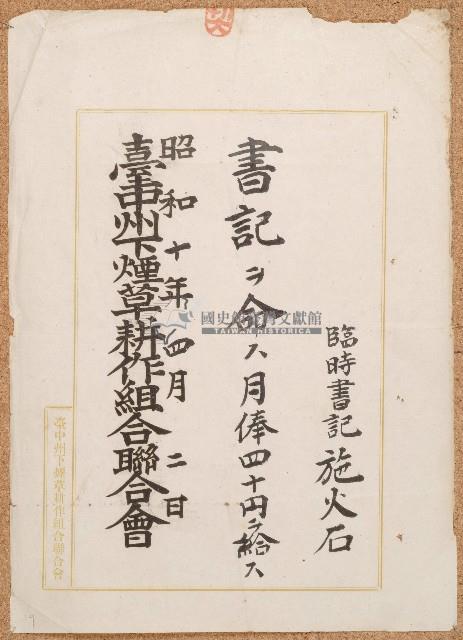 臨時書記 施火石
書記ヲ命ス月俸四十円ヲ給ス
昭和十年四月二日
臺中州下煙草耕作組合聯合會
臺中州下煙草耕作組合聯合會
國史館臺灣文獻館
TAIWAN HISTORICA